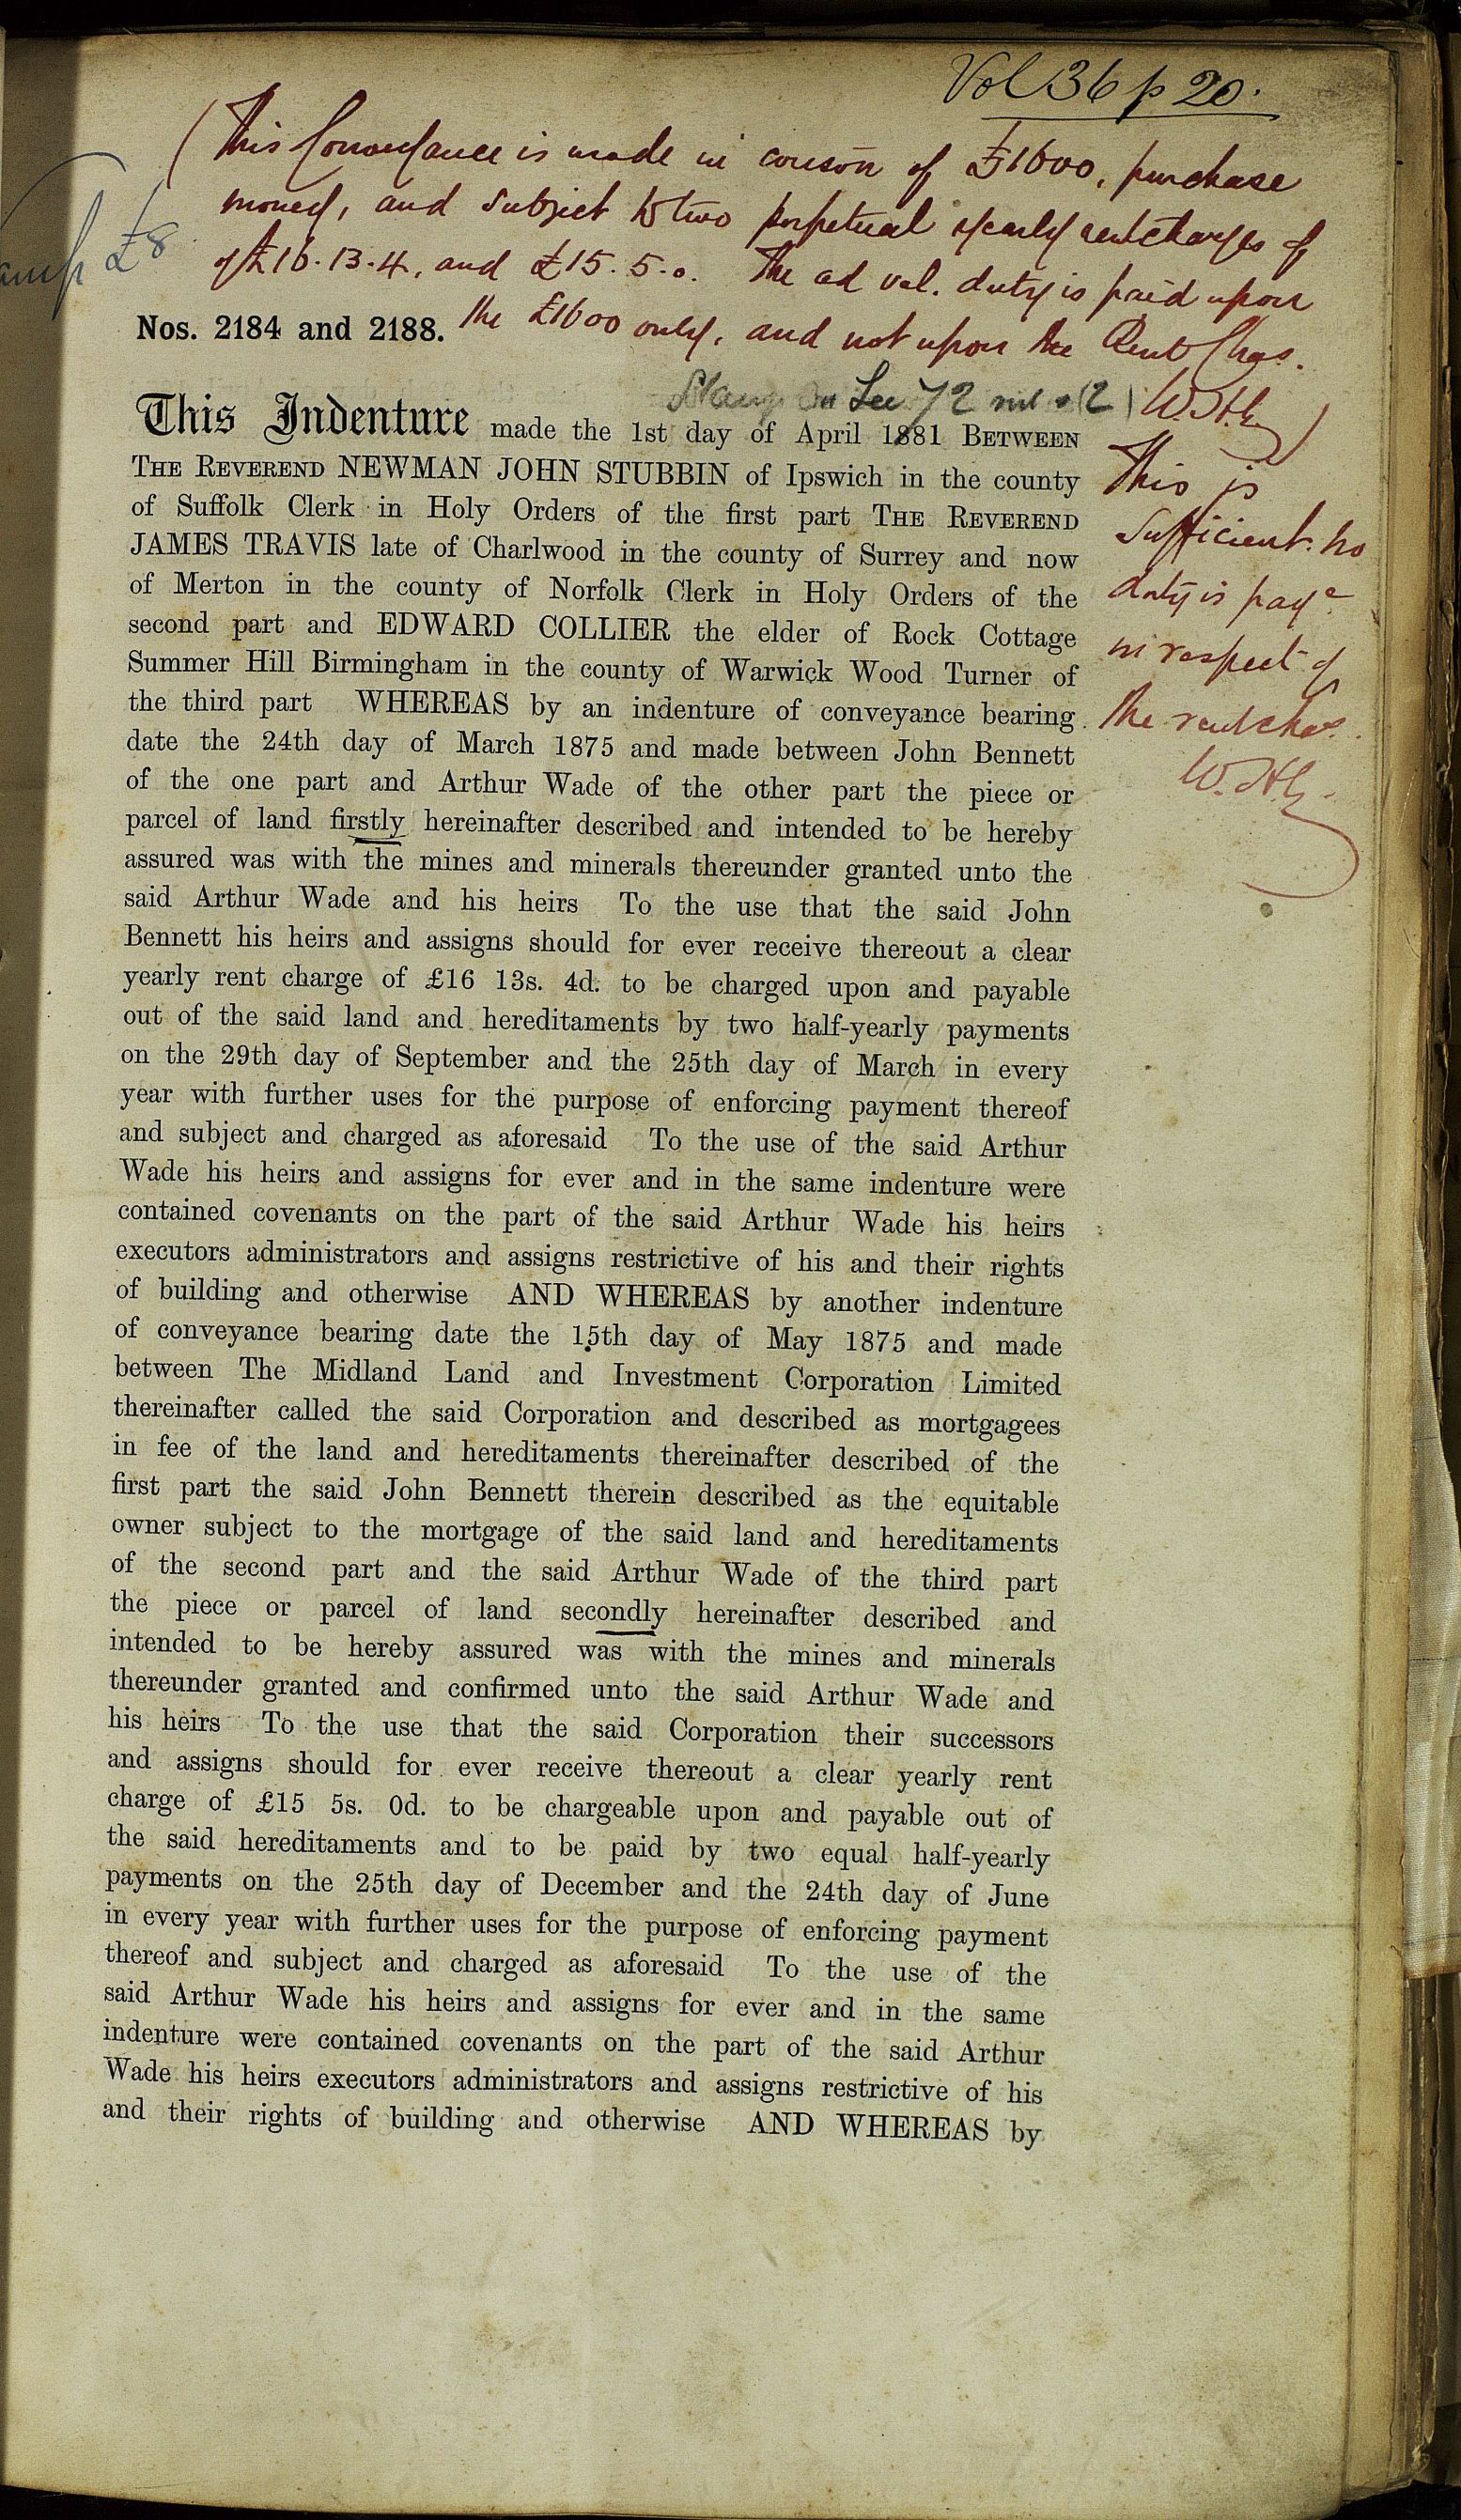 Vol 36 p 20.
(This Conveyance is made in conson of £1600, purchase
money, and subject to two perpetual yearly rentcharges of
of £16.13.4, and £15.5.0. The ad val. duty is paid upon
£8
Nos. 2184 and 2188.
the £1600 only, and not upon the Rent Chas.
W.H.G)
This Indenture made the 1st day of April 1881 BETWEEN
THE REVEREND NEWMAN JOHN STUBBIN of Ipswich in the county
of Suffolk Clerk in Holy Orders of the first part THE REVEREND
JAMES TRAVIS late of Charlwood in the county of Surrey and now
of Merton in the county of Norfolk Clerk in Holy Orders of the
second part and EDWARD COLLIER the elder of Rock Cottage
Summer Hill Birmingham in the county of Warwick Wood Turner of
the third part WHEREAS by an indenture of conveyance bearing
date the 24th day of March 1875 and made between John Bennett
of the one part and Arthur Wade of the other part the piece or
parcel of land firstly hereinafter described and intended to be hereby
assured was with the mines and minerals thereunder granted unto the
said Arthur Wade and his heirs To the use that the said John
Bennett his heirs and assigns should for ever receive thereout a clear
yearly rent charge of £16 13s. 4d. to be charged upon and payable
out of the said land and hereditaments by two half-yearly payments
on the 29th day of September and the 25th day of March in every
year with further uses for the purpose of enforcing payment thereof
and subject and charged as aforesaid To the use of the said Arthur
Wade his heirs and assigns for ever and in the same indenture were
contained covenants on the part of the said Arthur Wade his heirs
executors administrators and assigns restrictive of his and their rights
of building and otherwise AND WHEREAS by another indenture
of conveyance bearing date the 15th day of May 1875 and made
between The Midland Land and Investment Corporation Limited
thereinafter called the said Corporation and described as mortgagees
in fee of the land and hereditaments thereinafter described of the
first part the said John Bennett therein described as the equitable
owner subject to the mortgage of the said land and hereditaments
of the second part and the said Arthur Wade of the third part
the piece or parcel of land secondly hereinafter described and
intended to be hereby assured was with the mines and minerals
thereunder granted and confirmed unto the said Arthur Wade and
his heirs To the use that the said Corporation their successors
and assigns should for ever receive thereout a clear yearly rent
charge of £15 5s. 0d. to be chargeable upon and payable out of
the said hereditaments and to be paid by two equal half-yearly
payments on the 25th day of December and the 24th day of June
in every year with further uses for the purpose of enforcing payment
thereof and subject and charged as aforesaid To the use of the
said Arthur Wade his heirs and assigns for ever and in the same
indenture were contained covenants on the part of the said Arthur
Wade his heirs executors administrators and assigns restrictive of his
and their rights of building and otherwise AND WHEREAS by
This is
sufficient. no
duty is paye
in respect of
the rentchas.
W.H.G.